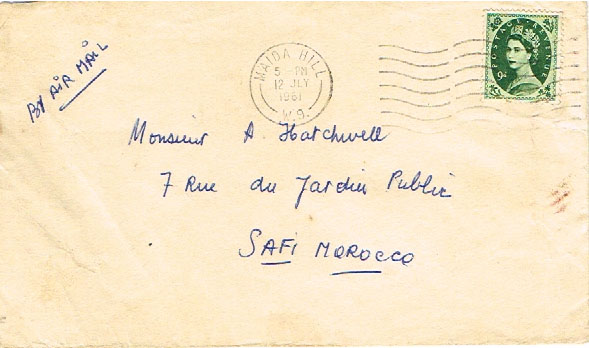 BY AIR MAIL
MAIDA HILL
5 PM
12 JLY
1961
W.9.
POSTAGE REVENUE
9D
Monsieur A Hatchwell
7 Rue du Jardin Public
SAFI MOROCCO